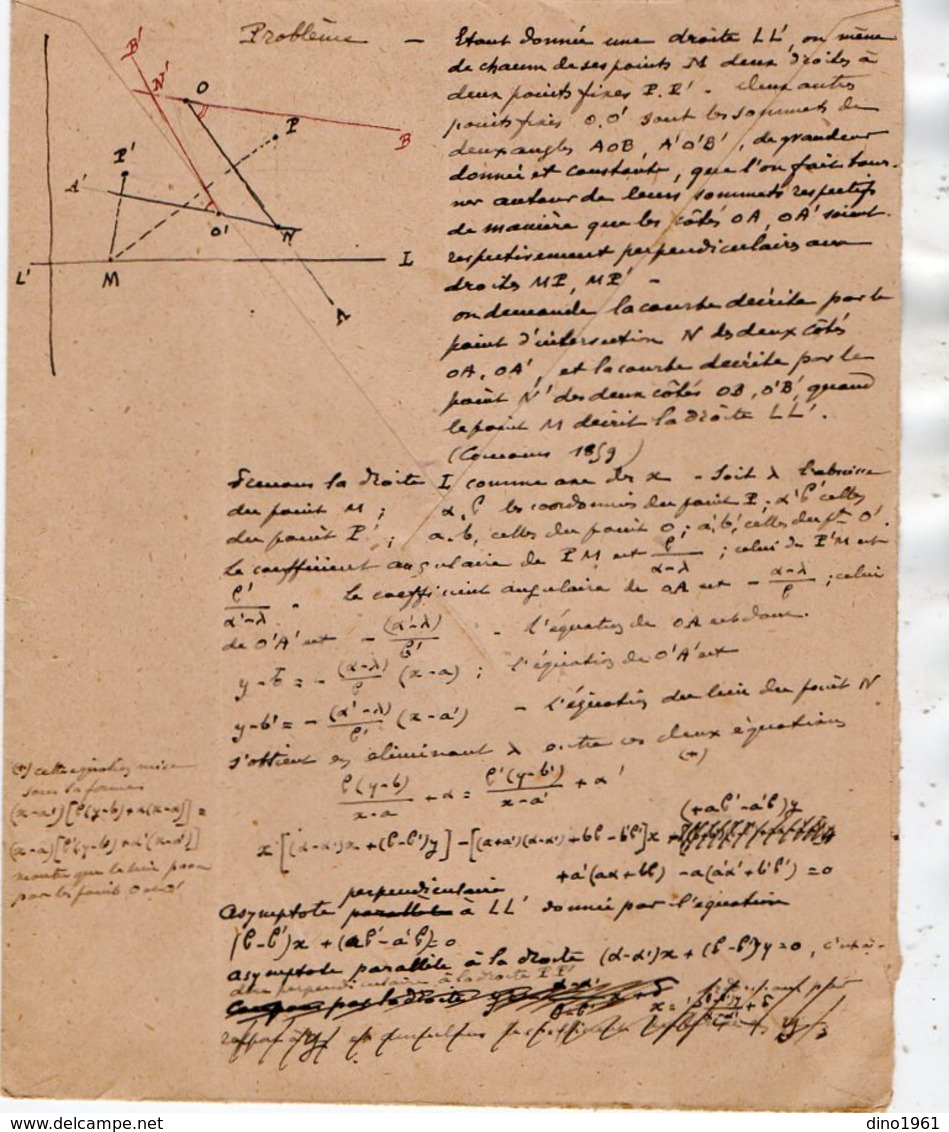 Problème — Etant donnée une droite LL', on mène
de chacun de ses points M deux droites à
deux points fixes P.P' - deux autres
points fixes O.O' sont les sommets de
deux angles AOB, A'O'B', de grandeur
donnée et constante, que l'on fait tour-
ner autour de leurs sommets respectifs
de manière que les côtés OA, OA' soient
respectivement perpendiculaires aux
droites MP, MP' -
on demande la courbe décrite par le
point d'intersection N des deux côtés
OA, OA', et la courbe décrite par le
point N' des deux côtés OB, O'B', quand
le point M décrit la droite LL'.
(Concours 1859)
B'
N'
O
P
B
P'
A'
O'
N
L'
M
L
A
Prenons la droite L comme axe des x - Soit λ l'abscisse
du point M ; α, β les coordonnées du point P ; α'β' celles
du point P' ; a.b, celles du point O ; a', b', celles du pt O'.
Le coefficient angulaire de PM est β/(α-λ) ; celui de P'M est
β'/(α'-λ) . Le coefficient angulaire de OA est - (α-λ)/β ; celui
de O'A' est - (α'-λ)/β' - l'équation de OA est donc
y-b = - (α-λ)/β (x-a) ; l'équation de O'A' est
y-b' = - (α'-λ)/β' (x-a') - l'équation du lieu du point N
s'obtient en éliminant λ entre ces deux équations
(+)
β(y-b)/(x-a) + α = β'(y-b')/(x-a') + α'
(+aβ'-a'β)y
x[(α-α')x + (β-β')y] - [(a+a')(α-α') + bβ - b'β']x +
+a'(aα+bβ) - a(a'α'+b'β') = 0
(+) cette équation mise
sous la forme
(x-a')[β(y-b)+α(x-a)] =
(x-a)[β'(y-b')+α'(x-a')]
montre que le lieu passe
par les points O et O'
perpendiculaire
asymptote parallèle à LL' donnée par l'équation
(β-β')x + (aβ'-a'β)=0
asymptote parallèle à la droite (α-α')x + (β-β')y=0, c'est à-
dire perpendiculaire à la droite PP'
dino1961